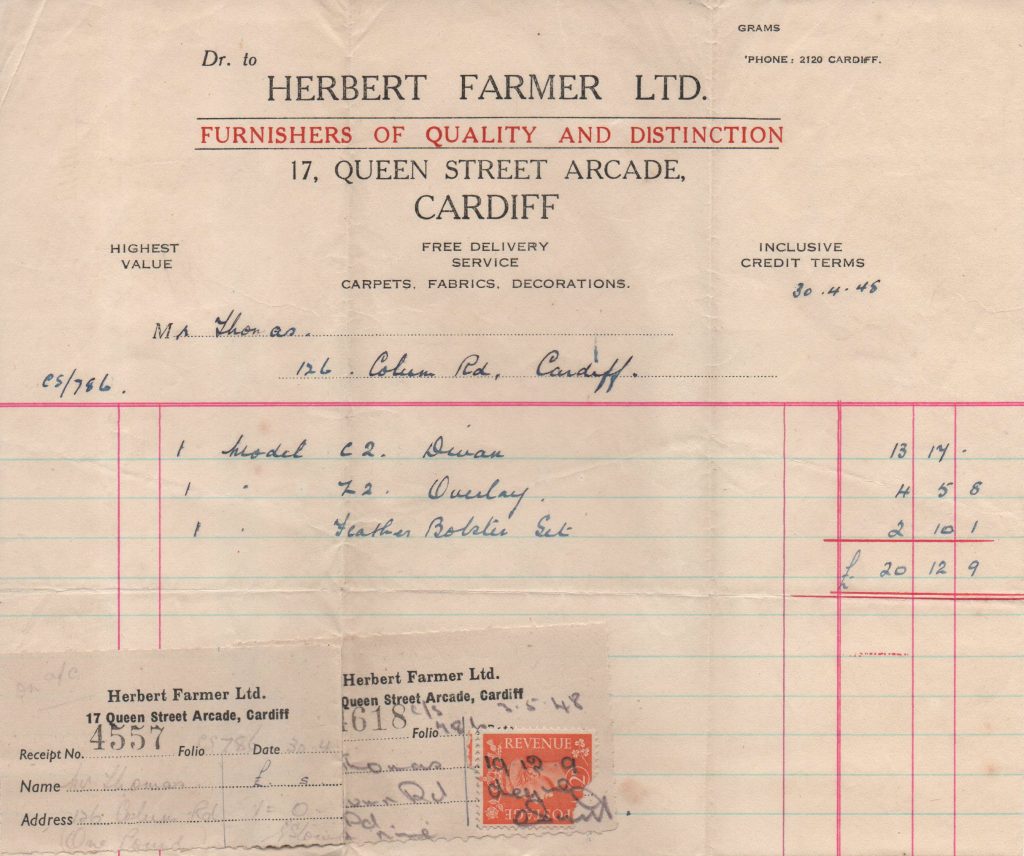 GRAMS
'PHONE: 2120 CARDIFF.
Dr. to
HERBERT FARMER LTD.
FURNISHERS OF QUALITY AND DISTINCTION
17, QUEEN STREET ARCADE,
CARDIFF
HIGHEST VALUE
FREE DELIVERY SERVICE
INCLUSIVE CREDIT TERMS
CARPETS, FABRICS, DECORATIONS.
30.4.48
Mr Thomas.
126. Colum Rd, Cardiff.
CS/786.
1 Model C2. Divan 13 17 .
1 " Z2. Overlay. 4 5 8
1 " Feather Bolster Set 2 10 1
£ 20 12 9
on a/c
Herbert Farmer Ltd.
17 Queen Street Arcade, Cardiff
Receipt No. 4557 Folio CS786 Date 30.4
Name Mr Thomas £ s
Address 126 Colum Rd 1 = 0
One Pound
Herbert Farmer Ltd.
Queen Street Arcade, Cardiff
4618 Folio C/S 786 3.5.48
Thomas
Rd
REVENUE
19 12 9
POSTAGE